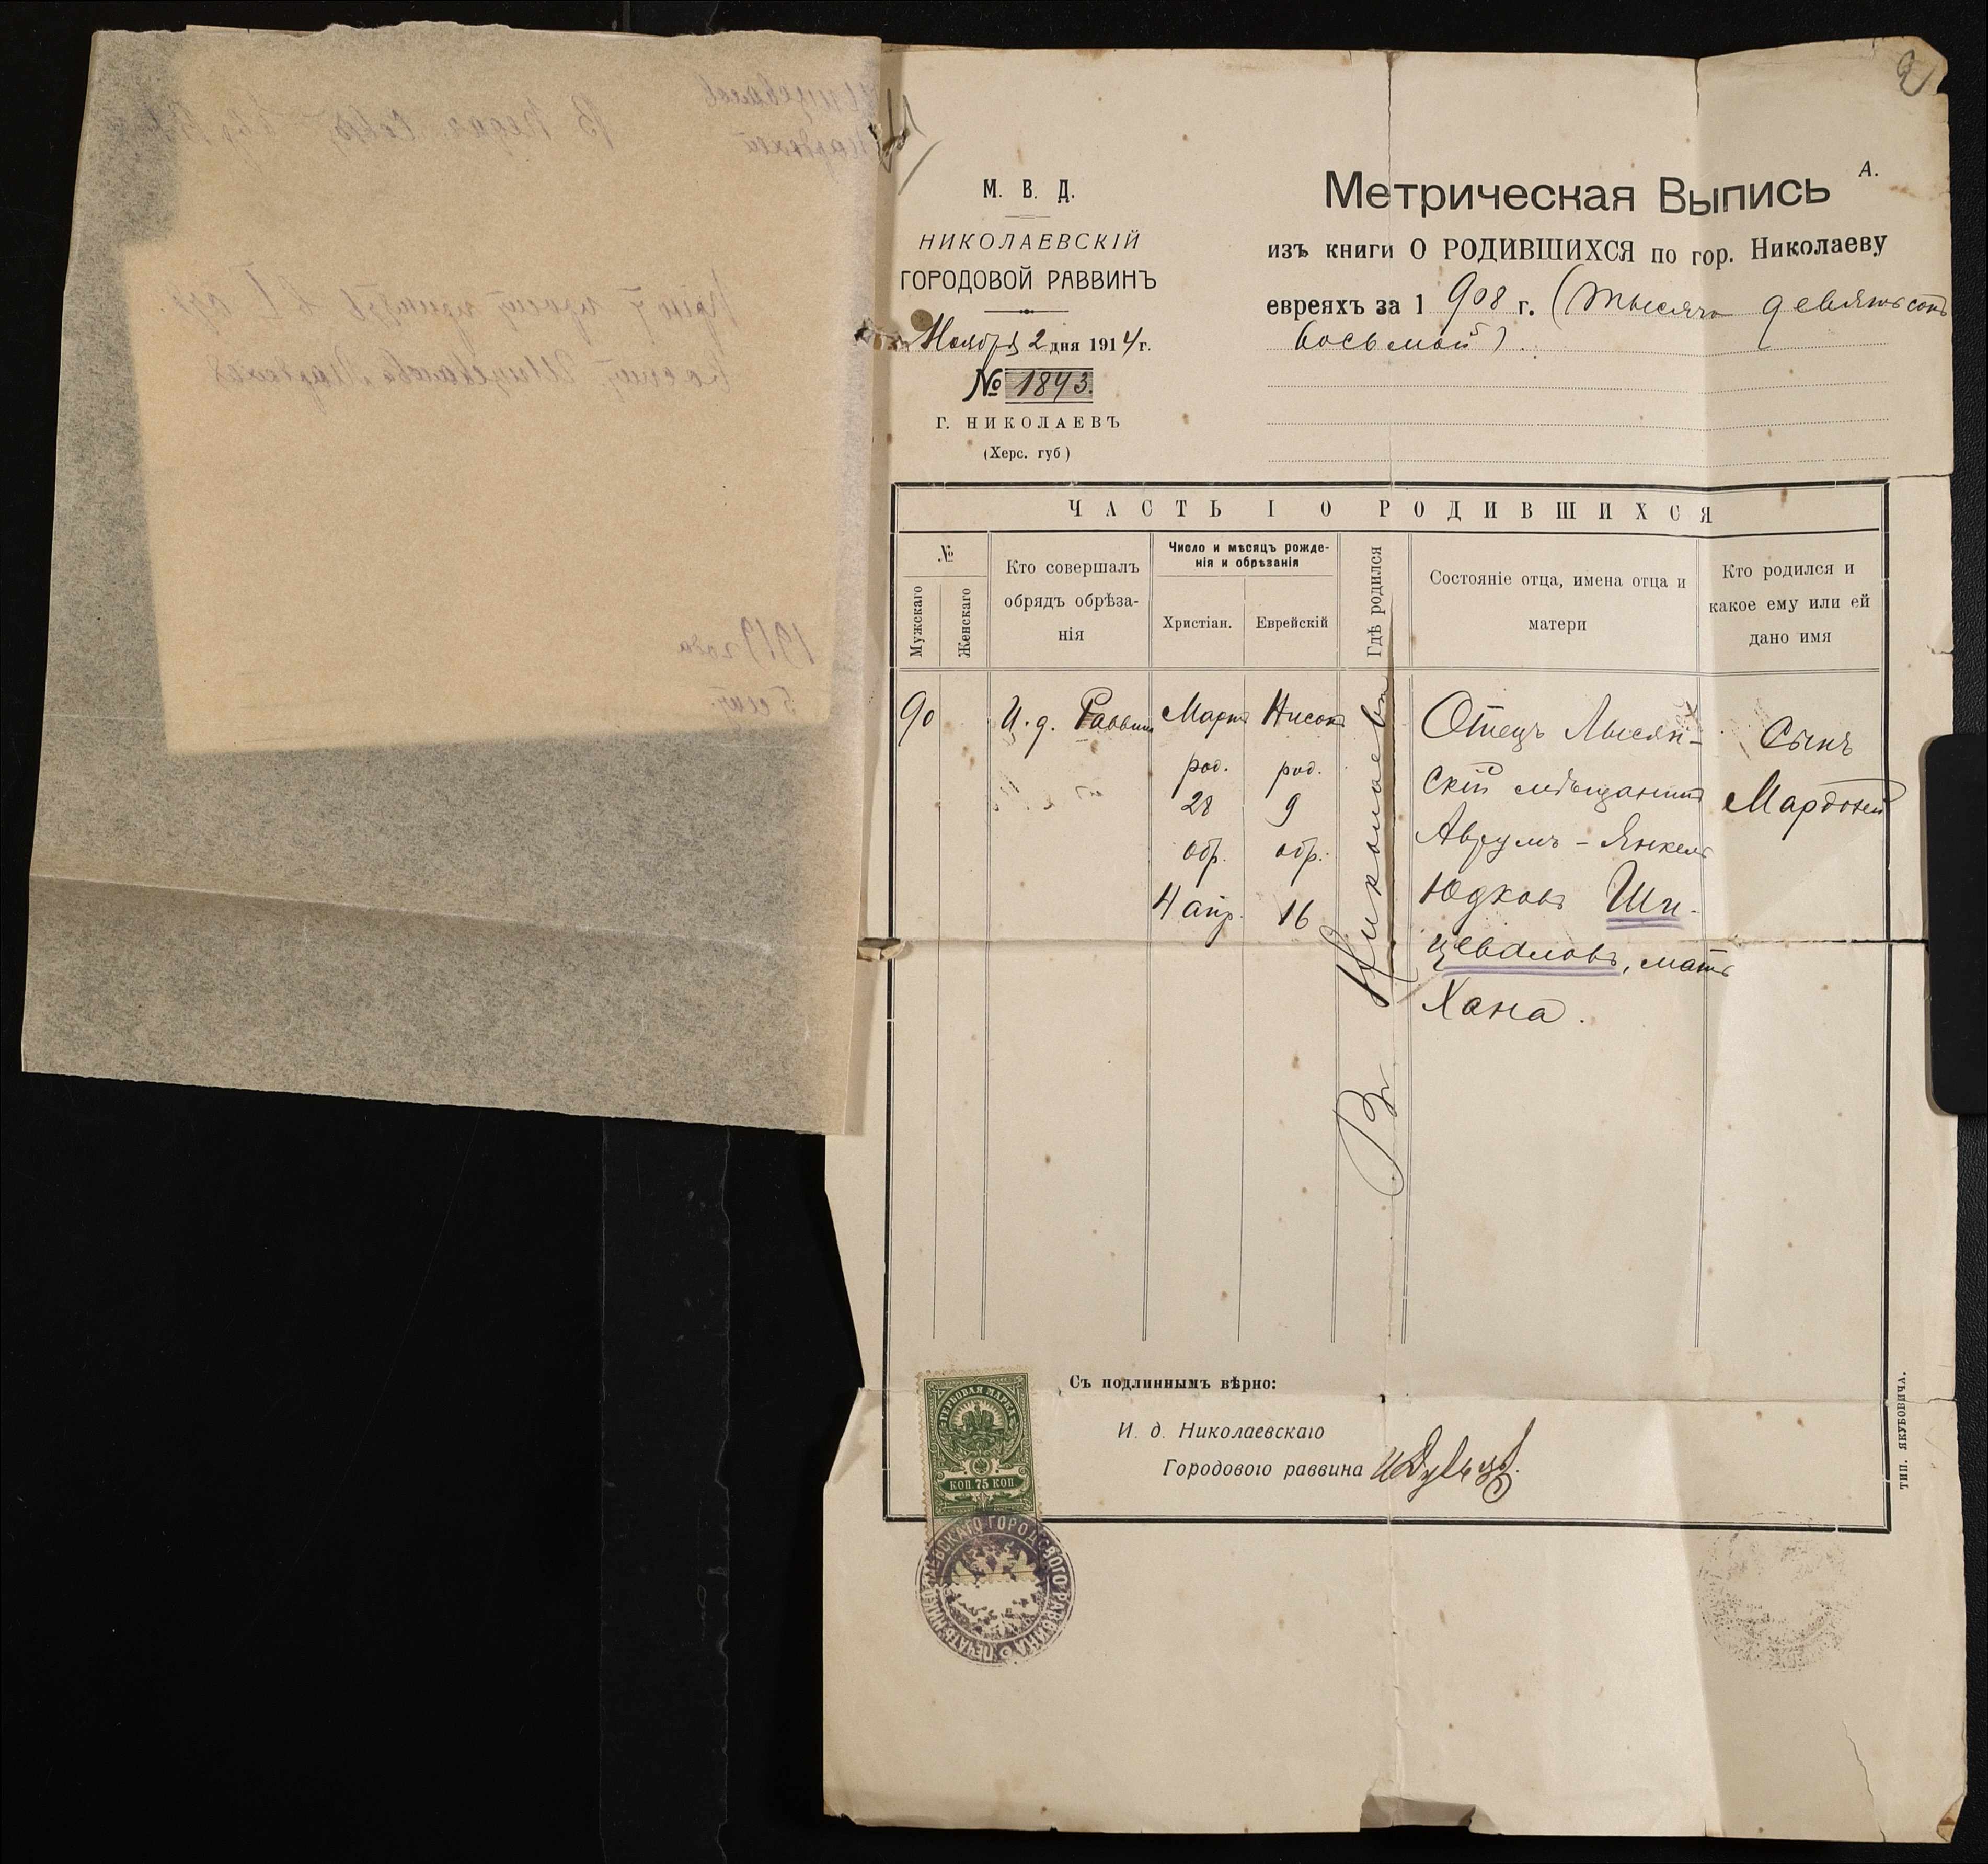 2
А.
М. В. Д.
НИКОЛАЕВСКІЙ
ГОРОДОВОЙ РАВВИНЪ
Ноября 2 дня 1914 г.
№ 1893.
Г. НИКОЛАЕВЪ
(Херс. губ)
Метрическая Выпись
изъ книги О РОДИВШИХСЯ по гор. Николаеву
евреяхъ за 1908 г. (тысяча девятьсотъ
восьмой).
ЧАСТЬ I О РОДИВШИХСЯ
№
Мужскаго
Женскаго
Кто совершалъ
обрядъ обрѣза-
нія
Число и мѣсяцъ рожде-
нія и обрѣзанія
Христіан.
Еврейскій
Гдѣ родился
Состояніе отца, имена отца и
матери
Кто родился и
какое ему или ей
дано имя
90
И. д. Раввина
Мартъ
род.
28
обр.
4 апр.
Нисонъ
род.
9
обр.
16
Въ Николаевѣ
Отецъ Лысян-
скій мѣщанинъ
Аврумъ-Янкель
Юдковъ Ши-
цеваловъ, мать
Хана.
Сынъ
Мардохей
Съ подлиннымъ вѣрно:
И. д. Николаевскаго
Городового раввина
ТИП. ЯКУБОВИЧА.
ГЕРБОВАЯ МАРКА
КОП. 75 КОП
ПЕЧАТЬ НИКОЛАЕВСКАГО ГОРОДОВОГО РАВВИНА
1919 года